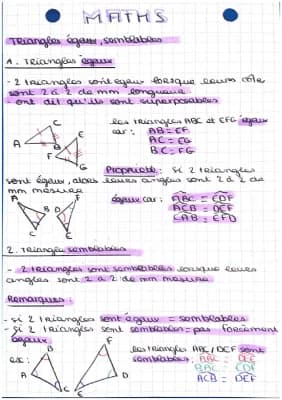 MATHS
Triangles égaux, semblables
1. Triangles égaux
- 2 triangles sont égaux lorsque leurs côté
sont 2 à 2 de mm longueur
- ont dit qu'ils sont superposables
Les triangles ABC et EFG égaux
car : AB = EF
AC = EG
BC = FG
A
B
C
E
F
G
Propriété : si 2 triangles
sont égaux, alors leurs angles sont 2 à 2 de
mm mesure
égaux car : ABC = EDF
ACB = DEF
CAB = EFD
2. Triangle semblables
- 2 triangles sont semblables lorsque leurs
angles sont 2 à 2 de mm mesure
Remarques :
- si 2 triangles sont égaux = semblables
- si 2 triangles sont semblables = pas forcément
égaux
ex :
Les triangles ABC / DEF sont
semblables :
ACB = DEF
A
B
C
D
E
F